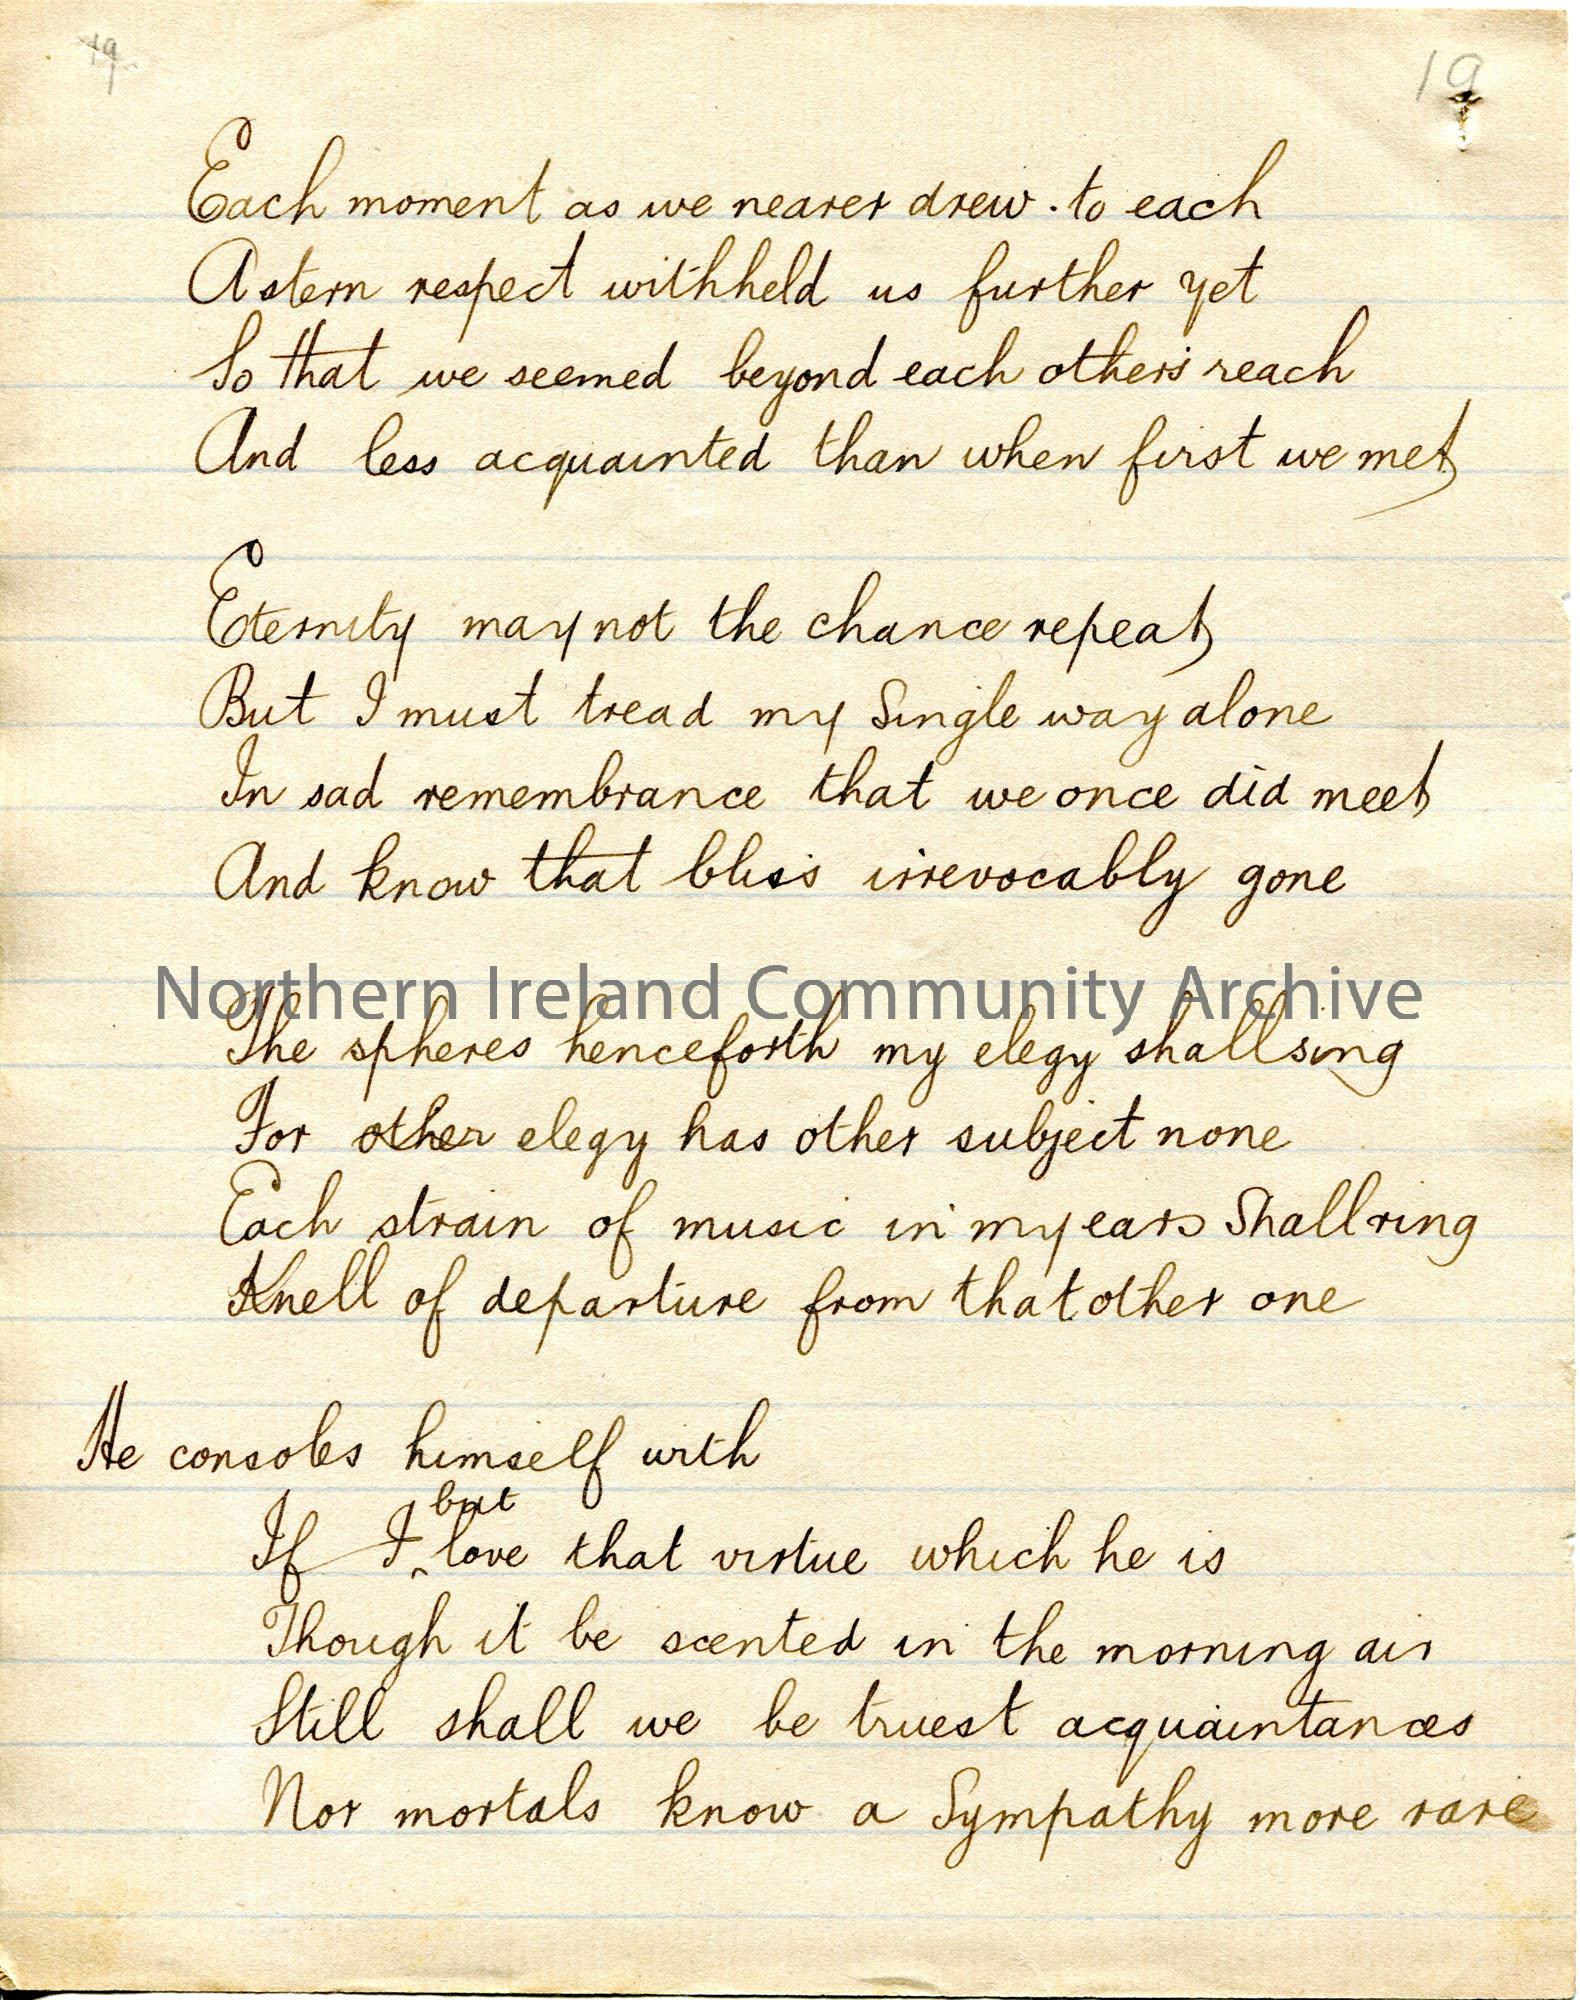 19
19
Each moment as we nearer drew . to each
A stern respect withheld us further yet
So that we seemed beyond each others reach
And less acquainted than when first we met
Eternity may not the chance repeat
But I must tread my Single way alone
In sad remembrance that we once did meet
And know that bliss irrevocably gone
Northern Ireland Community Archive
The spheres henceforth my elegy shall sing
For other elegy has other subject none
Each strain of music in my ears Shall ring
Knell of departure from that other one
He consoles himself with
but
If I ‸ love that virtue which he is
Though it be scented in the morning air
Still shall we be truest acquaintances
Nor mortals know a Sympathy more rare